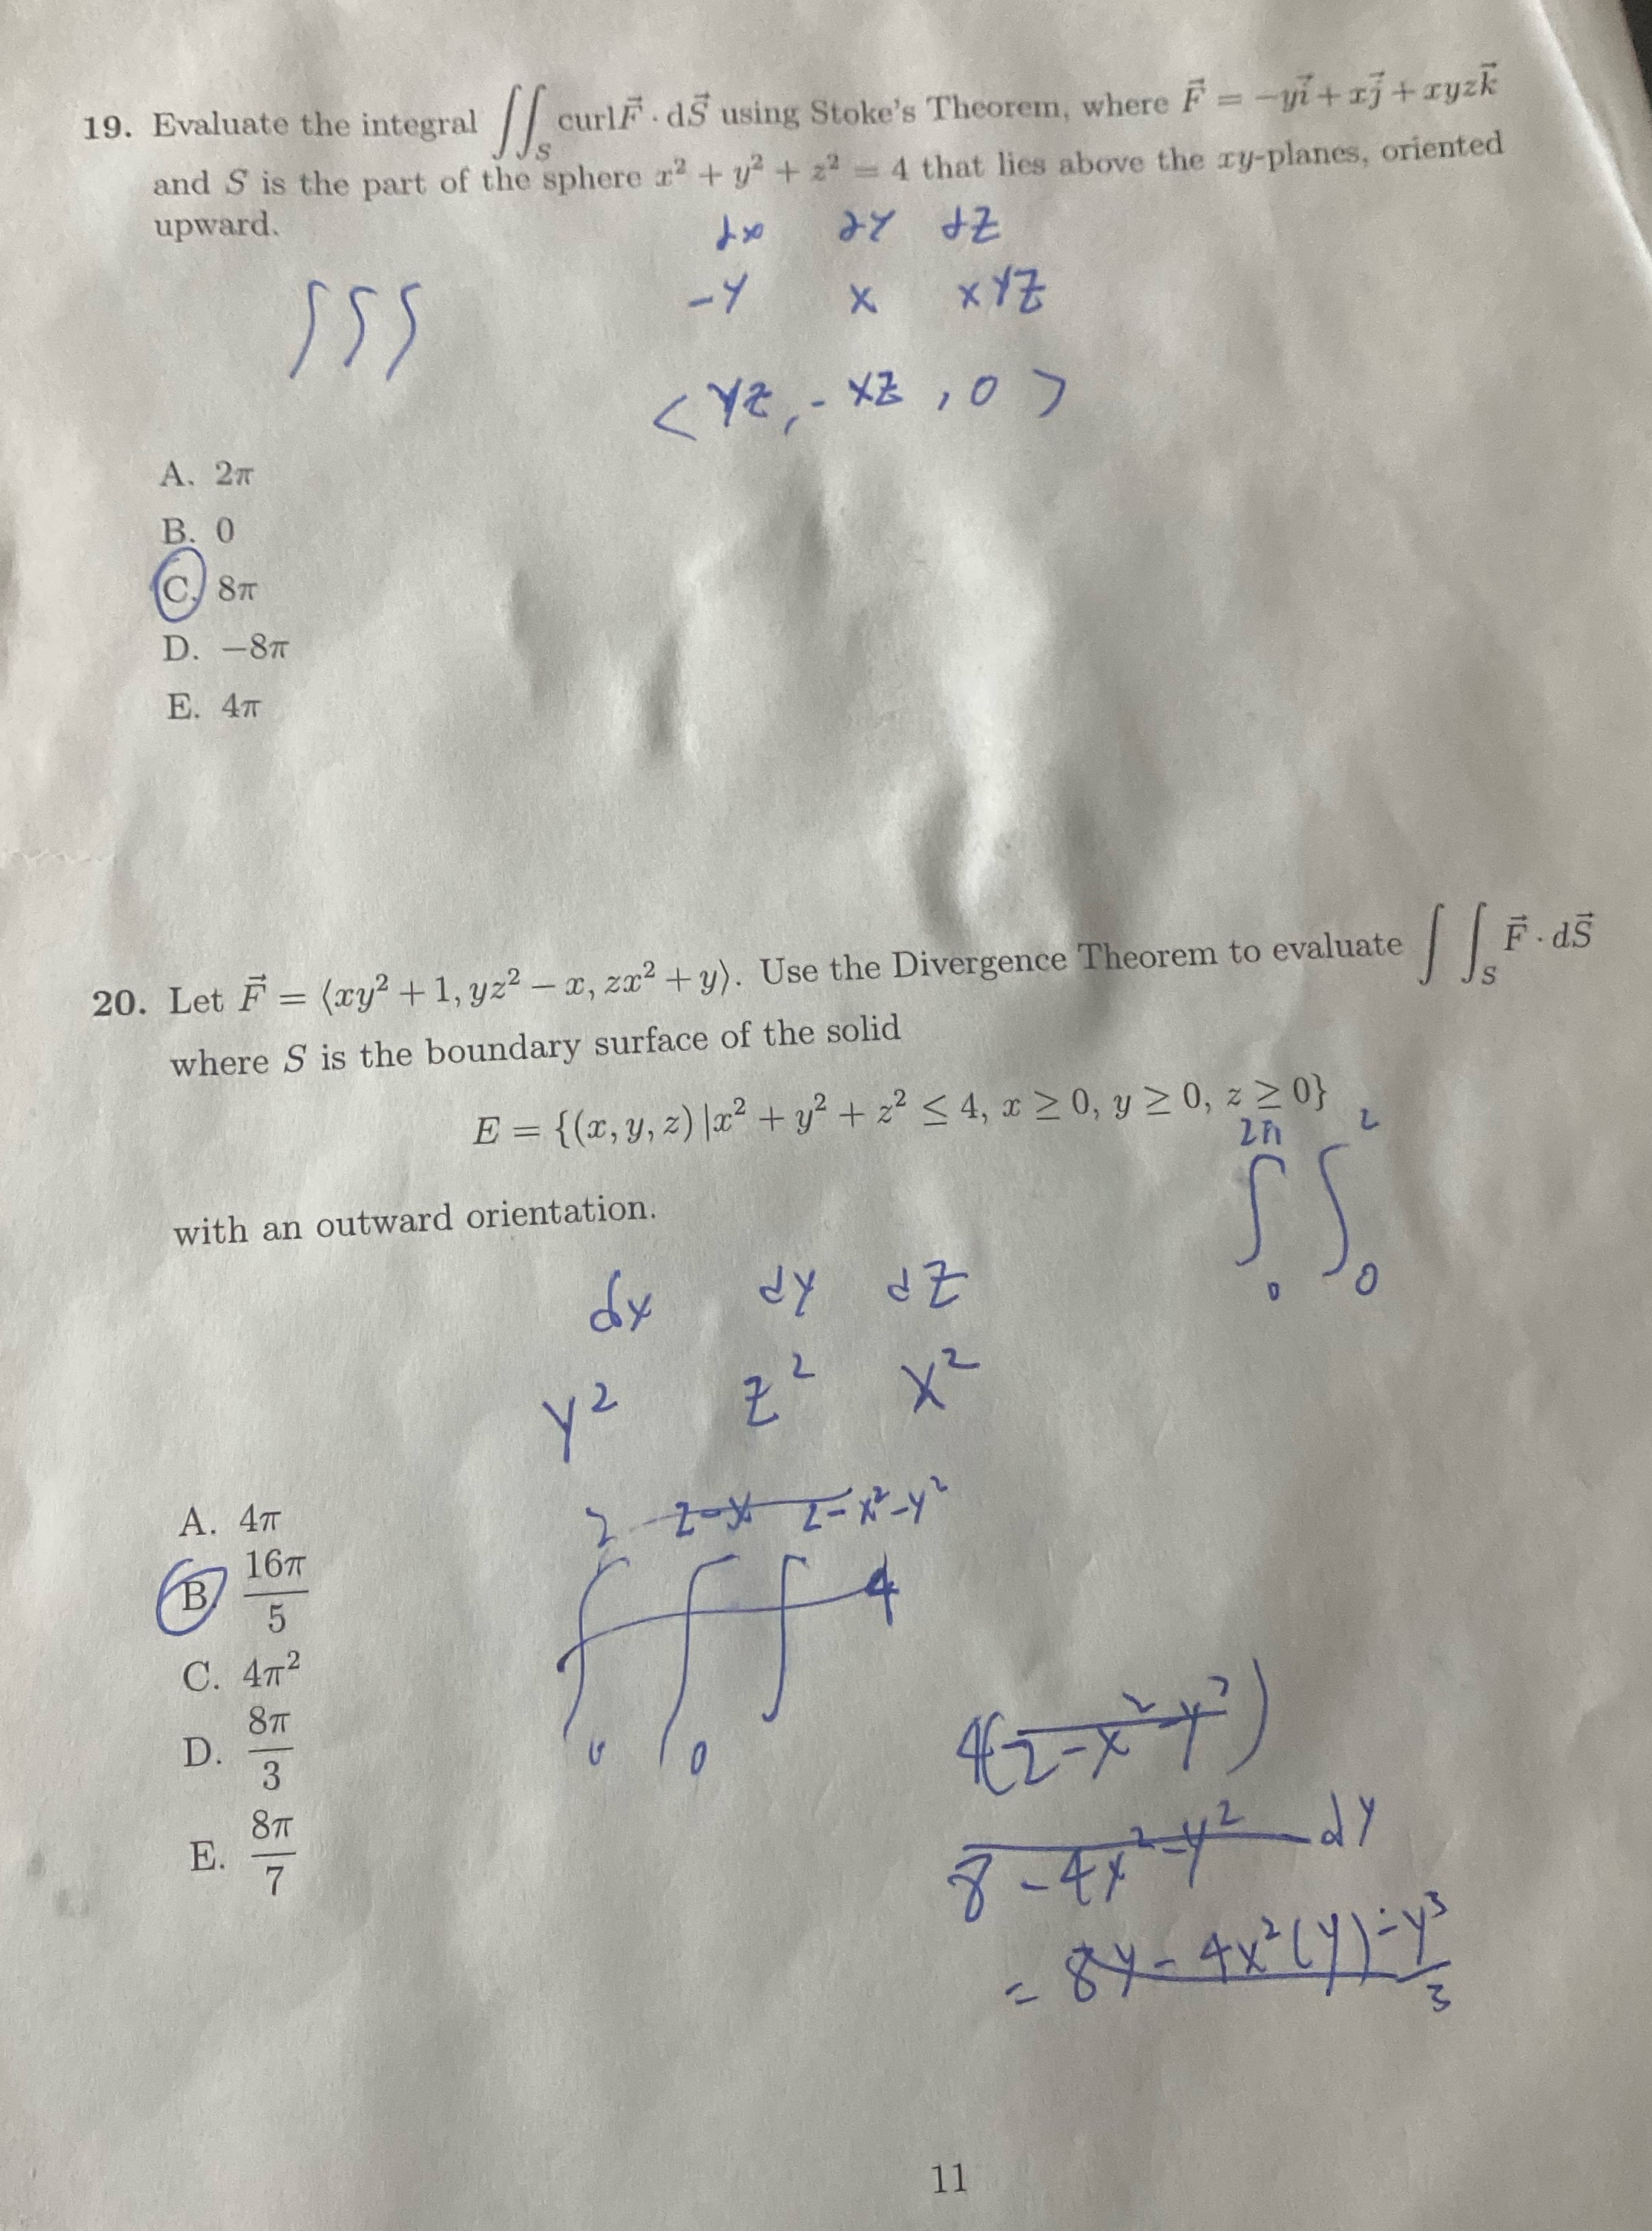 19. Evaluate the integral ∬_S curlF⃗ · dS⃗ using Stoke's Theorem, where F⃗ = −yi⃗ + xj⃗ + xyzk⃗
and S is the part of the sphere x² + y² + z² = 4 that lies above the xy-planes, oriented
upward.
dx dy dz
-y x xyz
∫∫∫
< yz, - xz , 0 >
A. 2π
B. 0
C. 8π
D. −8π
E. 4π
20. Let F⃗ = ⟨xy² + 1, yz² − x, zx² + y⟩. Use the Divergence Theorem to evaluate ∫∫_S F⃗ · dS⃗
where S is the boundary surface of the solid
E = {(x, y, z) |x² + y² + z² ≤ 4, x ≥ 0, y ≥ 0, z ≥ 0}
2π 2
∫ ∫
0 0
with an outward orientation.
dx dy dz
y² z² x²
2 2-x 2-x²-y²
∫ ∫ ∫ 4
0 0
A. 4π
B. 16π/5
C. 4π²
D. 8π/3
E. 8π/7
4(2-x²-y²)
8-4x²-y² dy
= 8y - 4x²(y) - y³/3
11